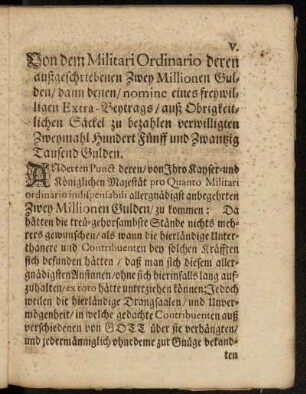 V.
Von dem Militari Ordinario deren
außgeschriebenen Zwey Millionen Gul-
den/ dann denen/ nomine eines freywil-
ligen Extra-Beytrags/ auß Obrigkeit-
lichen Säckel zu bezahlen verwilligten
Zweymahl Hundert Fünff und Zwantzig
Tausend Gulden.
Auf Derten Punct deren/ von Ihro Kayser- und
Königlichen Majestät pro Quanto Militari
ordinario indispensabili allergnädigst anbegehrten
Zwey Millionen Gulden/ zu kommen: Da
hätten die treu-gehorsambste Stände nichts meh-
rers gewunschen/ als wann die hierländige Unter-
thanere und Contribuenten bey solchen Kräfften
sich befunden hätten/ daß man sich diesem aller-
gnädigsten Ansinnen/ ohne sich hierinfalls lang auf-
zuhalten/ ex toto hätte unterziehen können: Jedoch
weilen die hierländige Drangsaalen/ und Unver-
mögenheit/ in welche gedachte Contribuenten auß
verschiedenen von GOTT über sie verhängten/
und jedermänniglich ohne deme zur Gnüge bekand-
ten